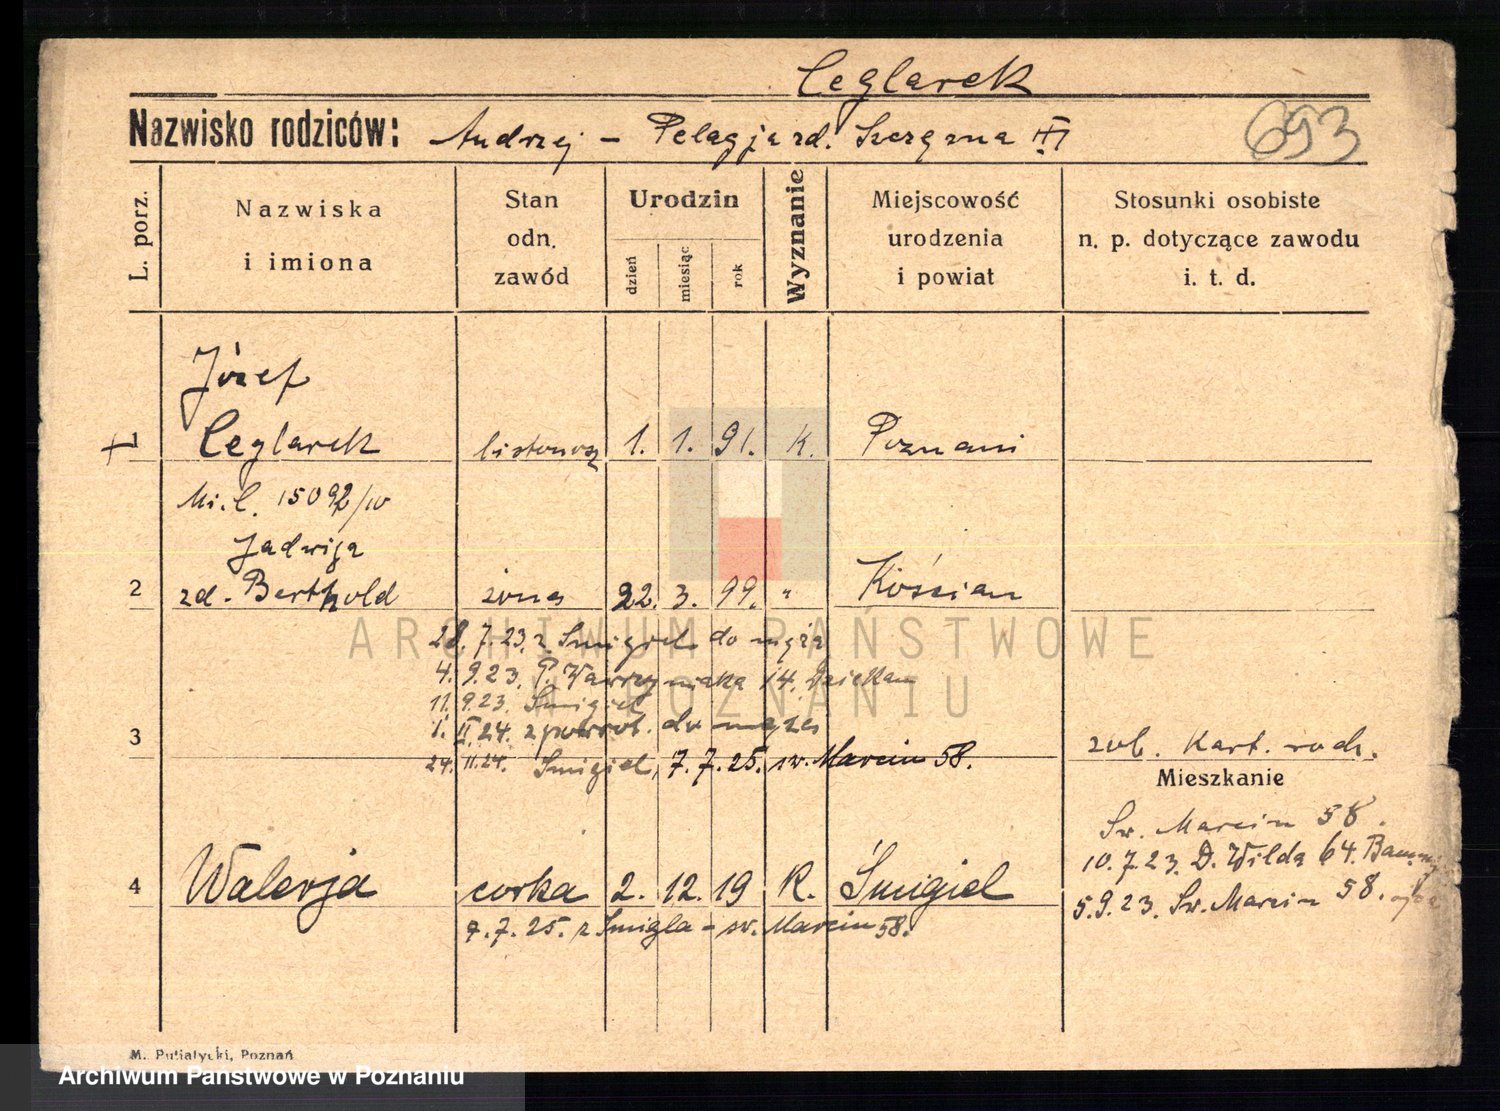 Ceglarek
Nazwisko rodziców: Andrzej - Pelagja zd. 693
L. porz.
Nazwiska i imiona
Stan odn. zawód
Urodzin
dzień miesiąc rok
Wyznanie
Miejscowość urodzenia i powiat
Stosunki osobiste n. p. dotyczące zawodu i. t. d.
Józef
1 Ceglarek listonosz 1. 1. 91. K. Poznań
15092/
Jadwiga
2 zd. Berthold żona 22. 3. 99. " Kościan
28. 7. 23. z Śmigiel do męża
4. 9. 23. P. Wawrzyniaka 14.
11. 9. 23. Śmigiel
1. II. 24. z powrot. do męża
3 zob. Kart. rodz.
24. 11. 24. Śmigiel, 7. 7. 25. św. Marcin 58.
Mieszkanie
Św. Marcin 58.
10. 7. 23. D. Wilda 64.
4 Walerja córka 2. 12. 19 K. Śmigiel
5. 9. 23. Św. Marcin 58.
7. 7. 25. z Śmigla - św. Marcin 58.
ARCHIWUM PAŃSTWOWE
W POZNANIU
M. Putiatycki, Poznań
Archiwum Państwowe w Poznaniu